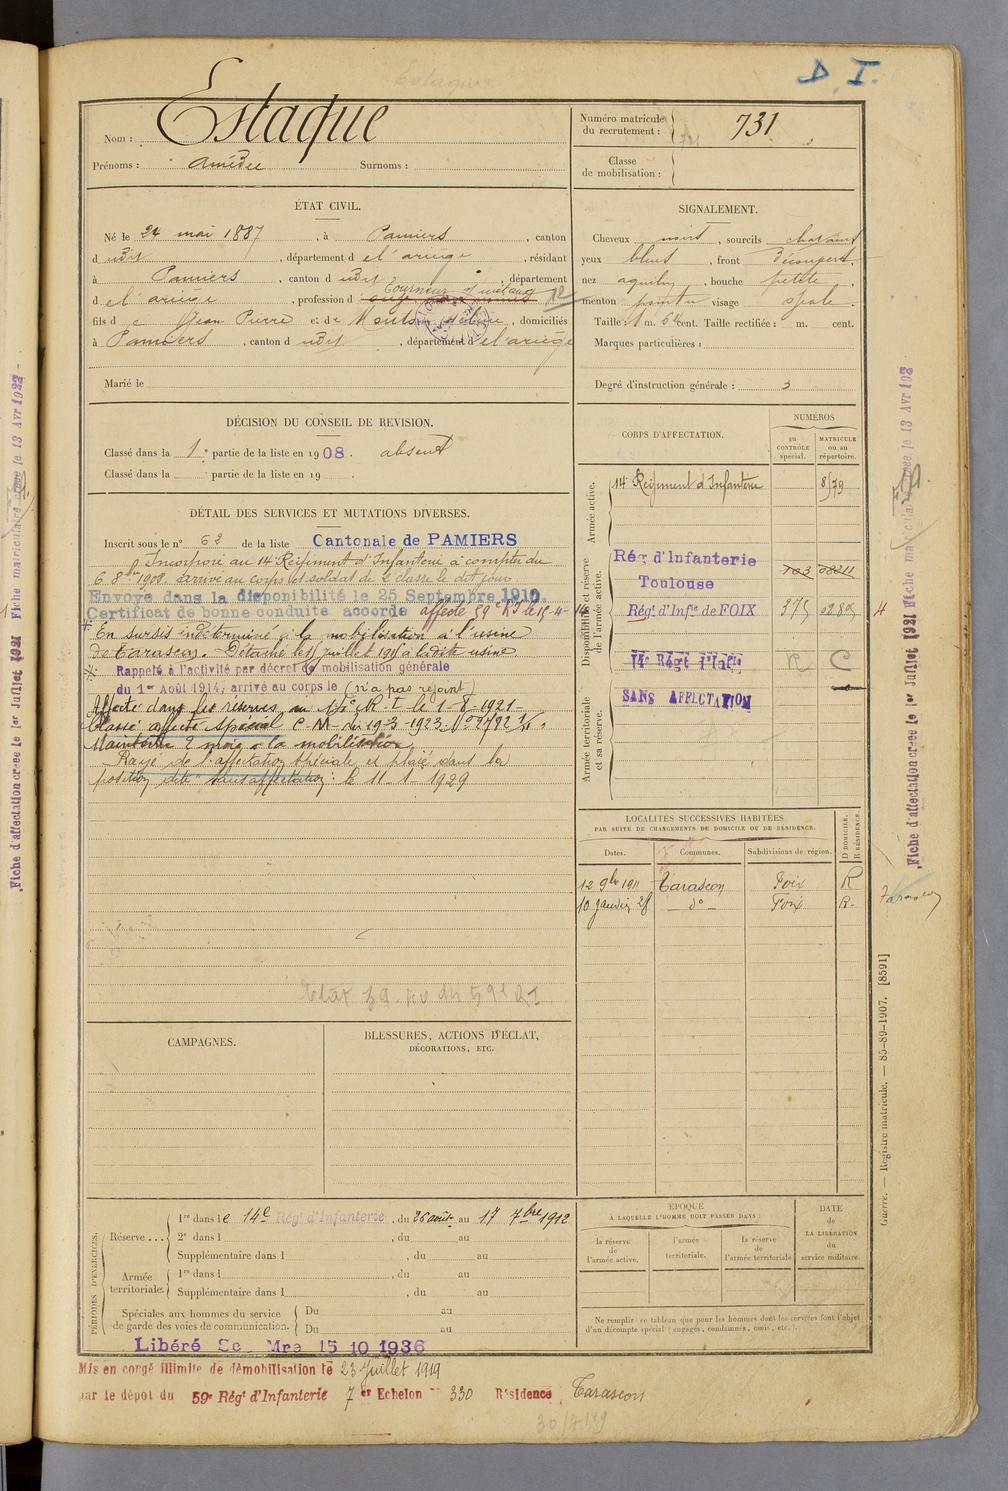 D. I.
Nom : Estaque
Prénoms : Amédée Surnoms :
Numéro matricule du recrutement : 731
Classe de mobilisation :
ÉTAT CIVIL.
Né le 24 mai 1887, à Pamiers, canton
d udit, département d e l'ariège, résidant
à Pamiers, canton d udit, département
d e l'ariège, profession d Tourneur s/ métaux 12
fils d e Jean Pierre et de, domiciliés
à Pamiers, canton d udit, département d e l'ariège
Marié le
SIGNALEMENT.
Cheveux noirs, sourcils chatains
yeux bleus, front découvert,
nez aquilin, bouche petite,
menton pointu visage ovale.
Taille : 1 m. 64 cent. Taille rectifiée : m. cent.
Marques particulières :
Degré d'instruction générale : 3
DÉCISION DU CONSEIL DE REVISION.
Classé dans la 1e partie de la liste en 1908. absent
Classé dans la partie de la liste en 19 .
DÉTAIL DES SERVICES ET MUTATIONS DIVERSES.
Inscrit sous le n° 62 de la liste Cantonale de PAMIERS
Incorporé au 14e Régiment d'Infanterie à compter du
6 8bre 1908. arrivé au corps et soldat de 2e classe le dit jour.
Envoyé dans la disponibilité le 25 Septembre 1910.
Certificat de bonne conduite accordé affecté 59e RI le 15-4-
En sursis indéterminé à la mobilisation à l'usine
de Tarascon. Détaché le 1 juillet 1917 à ladite usine
Rappelé à l'activité par décret de mobilisation générale
du 1er Août 1914, arrivé au corps le (n'a pas rejoint)
Affecté dans les réserves au 14e R.I. le 1-8-1921-
Classé affecté spécial C.M. du 19-3-1923
Maintenu 2 mois à la mobilisation
Rayé de l'affectation spéciale et placé dans la
position dite "sans affectation" le 11-1-1929
CORPS D'AFFECTATION.
NUMÉROS
au contrôle spécial.
MATRICULE ou au répertoire.
Armée active.
14e Régiment d'Infanterie 8579
Disponibilité et réserve de l'armée active.
Rég d'Infanterie
Toulouse 103 08211
Régt. d'Infie de FOIX 375 0285
14e Régt d'Infie R C
Armée territoriale et sa réserve.
SANS AFFECTATION
LOCALITÉS SUCCESSIVES HABITÉES
PAR SUITE DE CHANGEMENTS DE DOMICILE OU DE RÉSIDENCE.
Dates. Communes. Subdivisions de région. D DOMICILE. R RÉSIDENCE.
12 9bre 1911 Tarascon Foix R
10 janvier 28 — do — Foix R.
Tarascon
CAMPAGNES.
BLESSURES, ACTIONS D'ÉCLAT,
DÉCORATIONS, ETC.
PÉRIODES D'EXERCICES.
Réserve... 1re dans le 14e Rég' d'Infanterie, du 26 août au 17 7bre 1912
2e dans l , du au
Supplémentaire dans l , du au
Armée territoriale. 1re dans l , du au
Supplémentaire dans l , du au
Spéciales aux hommes du service de garde des voies de communication. Du au
Du au
ÉPOQUE
À LAQUELLE L'HOMME DOIT PASSER DANS :
la réserve de l'armée active.
l'armée territoriale.
la réserve de l'armée territoriale
DATE DE LA LIBÉRATION du service militaire.
Ne remplir ce tableau que pour les hommes dont les services font l'objet
d'un décompte spécial (engagés, condamnés, omis, etc.).
Libéré Sce Mre 15 10 1936
Mis en congé illimité de démobilisation le 23 Juillet 1919
par le dépôt du 59e Régt d'Infanterie 7 er Echelon n° 330 Résidence Tarascon
30/7/19
Fiche d'affectation créée le 1er Juillet 1921 Fiche matriculaire créée le 13 Avr 1922
Fiche d'affectation créée le 1er Juillet 1921 Fiche matriculaire créée le 13 Avr 192
Guerre. — Registre matricule. — 85-89-1907. [8591]